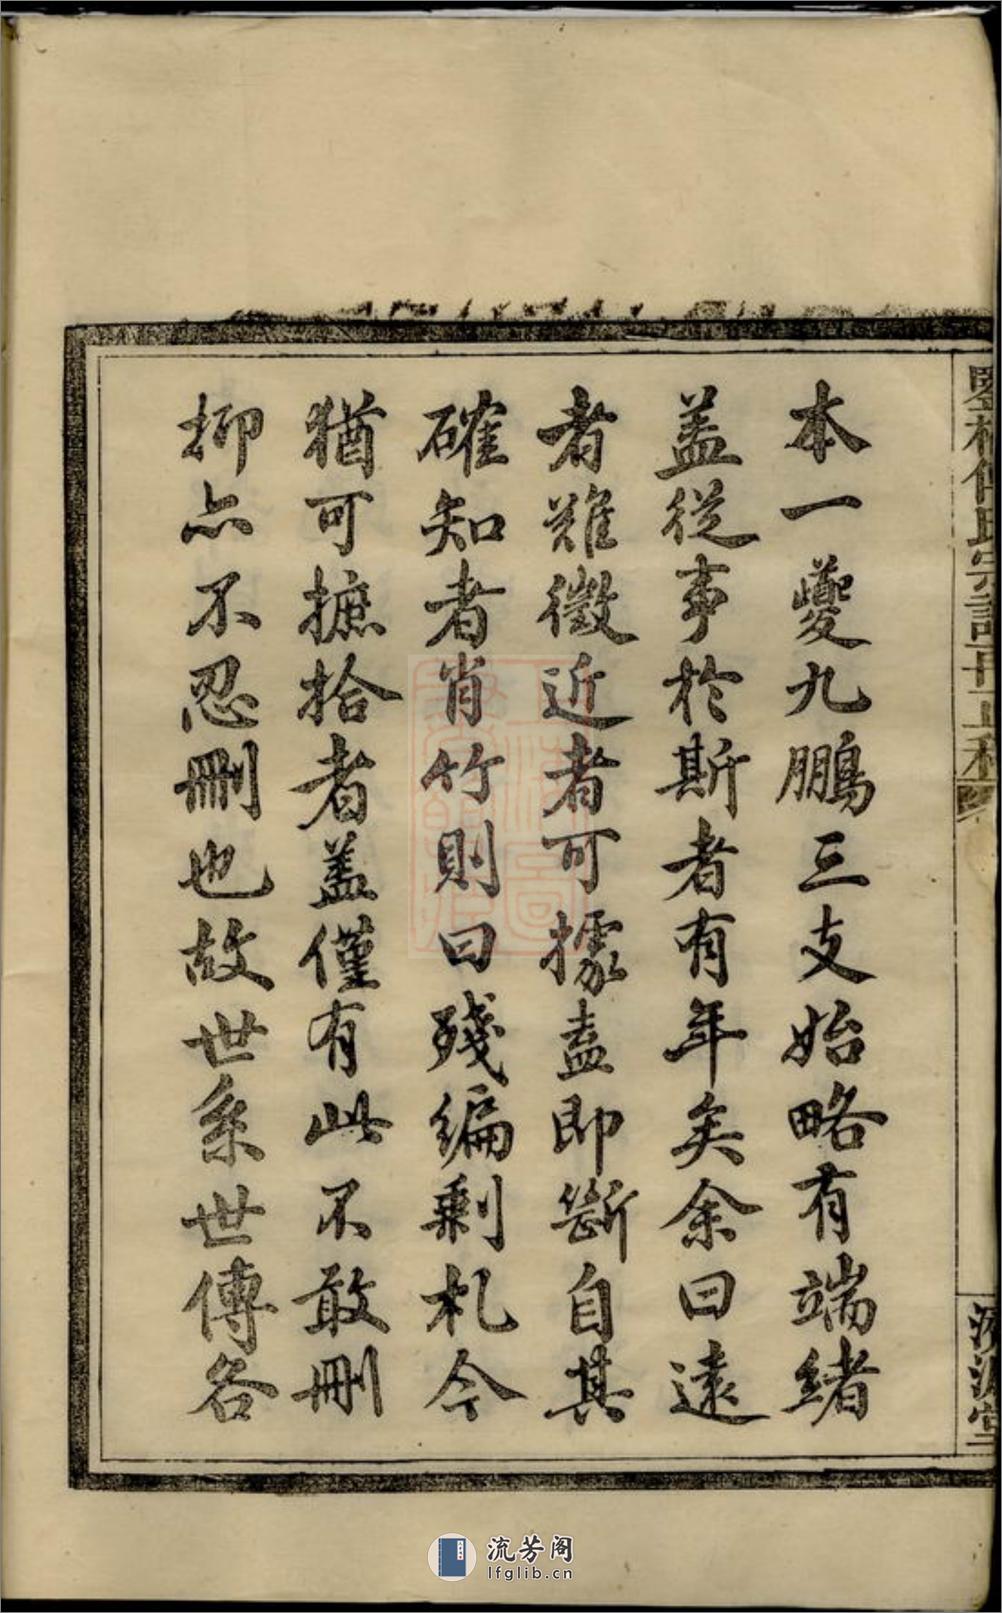 本一夔九鵬三支始略有端緒
盖從事於斯者有年矣余曰遠
者難徵近者可據盍即斷自其
確知者肖竹則曰殘編剩札今
猶可摭拾者盖僅有此不敢刪
抑亦不忍刪也故世系世傳各
流芳阁
lfglib.cn